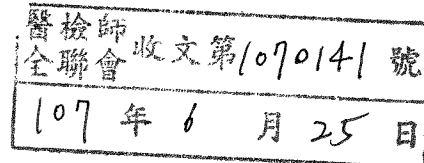 醫檢師全聯會收文第1070141號
107年6月25日